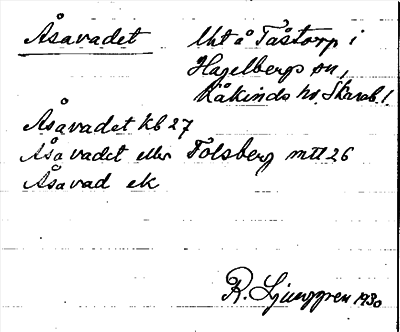 Åsavadet Uht å Tåstorp i
Hagelbergs sn,
Kåkinds hd. Skarab. l.
Åsavadet kb 27
Åsavadet eller Tolsberg mtl 26
Åsavad ek
R. Ljunggren 1930